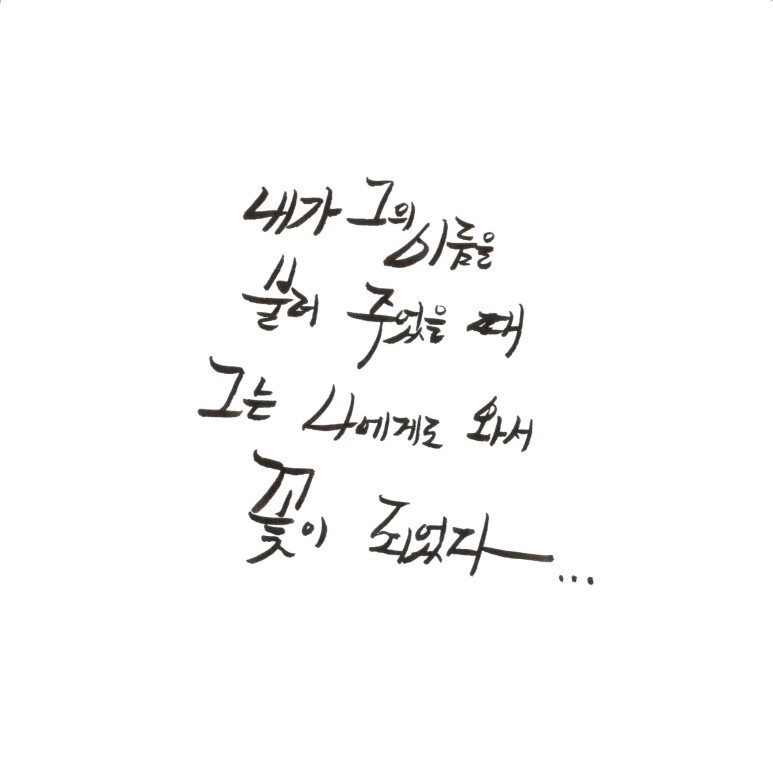 내가 그의 이름을
불러 주었을 때
그는 나에게로 와서
꽃이 되었다...